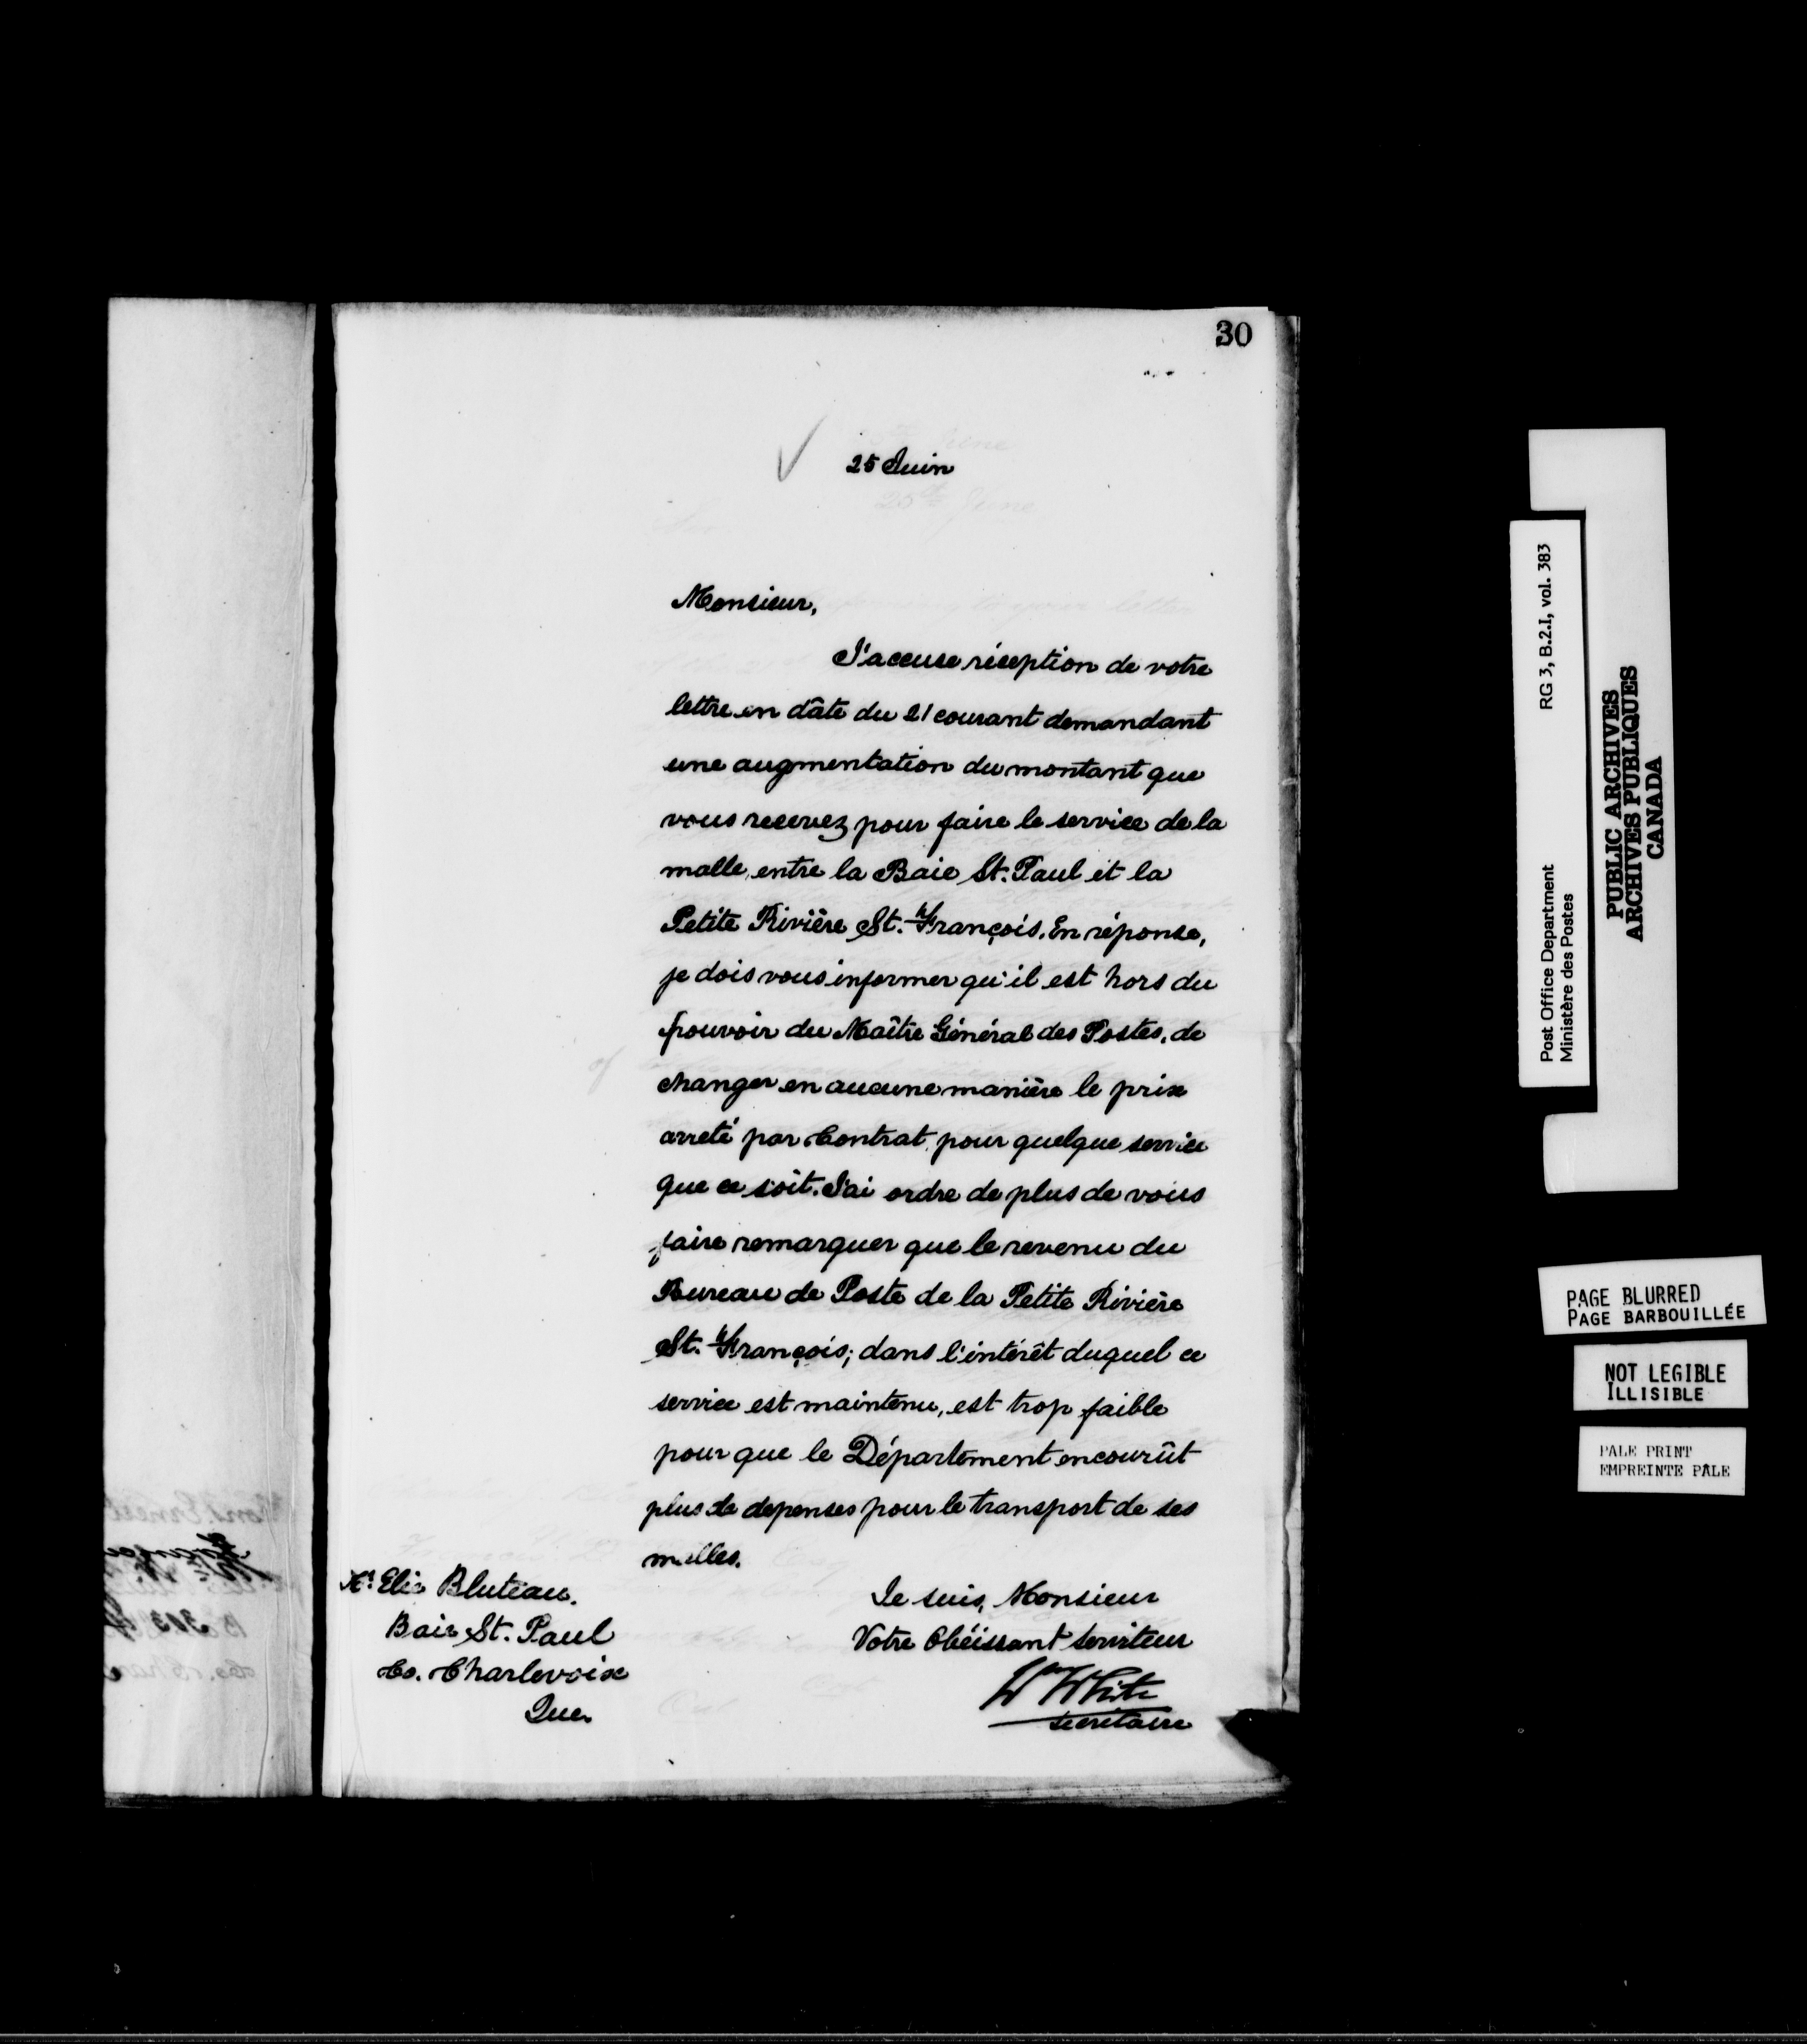 30
25 Juin
Monsieur,
J'accuse réception de votre
lettre en dâte du 21 courant demandant
une augmentation du montant que
vous recevez pour faire le service de la
malle, entre la Baie St. Paul et la
Petite Rivière St. François. En réponse,
je dois vous informer qu'il est hors du
pouvoir du Maître Général des Postes, de
changer en aucune manière le prix
arreté par Contrat, pour quelque service
que ce soit. J'ai ordre de plus de vous
faire remarquer que le revenu du
Bureau de Poste de la Petite Rivière
St. François; dans l'intérêt duquel ce
service est maintenu, est trop faible
pour que le Département encourût
plus de depenses pour le transport de ses
malles.
Je suis, Monsieur
Votre Obéissant Serviteur
Wm White
Secrétaire
Mr. Elie Bluteau.
Baie St. Paul
Co. Charlevoix
Que.
Post Office Department RG 3, B.2.I, vol. 383
Ministère des Postes
PUBLIC ARCHIVES
ARCHIVES PUBLIQUES
CANADA
PAGE BLURRED
PAGE BARBOUILLÉE
NOT LEGIBLE
ILLISIBLE
PALE PRINT
EMPREINTE PÂLE